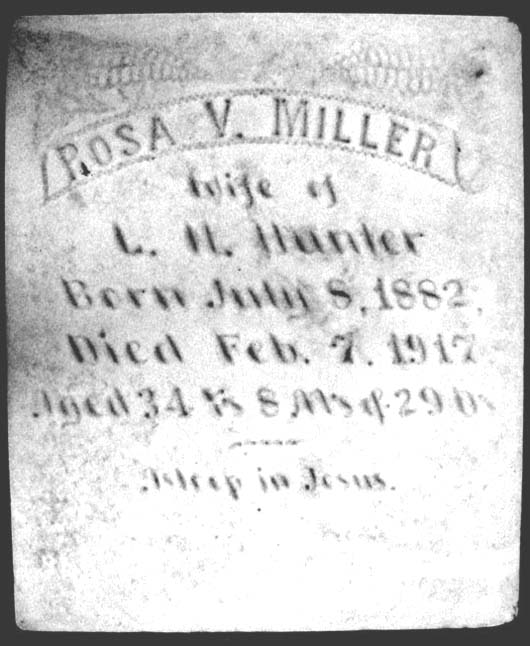 ROSA V. MILLER
Wife of
L. H. Hunter
Born July 8, 1882,
Died Feb. 7, 1917
Aged 34 Ys 8 Ms & 29 Ds
Asleep in Jesus.